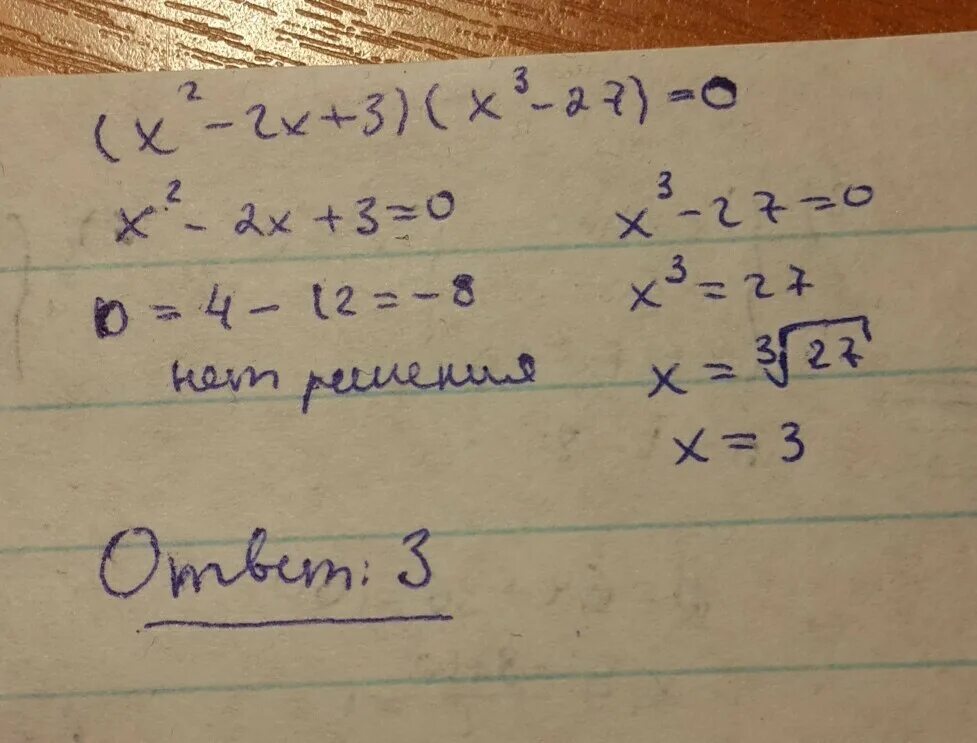 (x² - 2x + 3)(x³ - 27) = 0
x² - 2x + 3 = 0
D = 4 - 12 = -8
нет решения
x³ - 27 = 0
x³ = 27
x = ∛27
x = 3
Ответ: 3